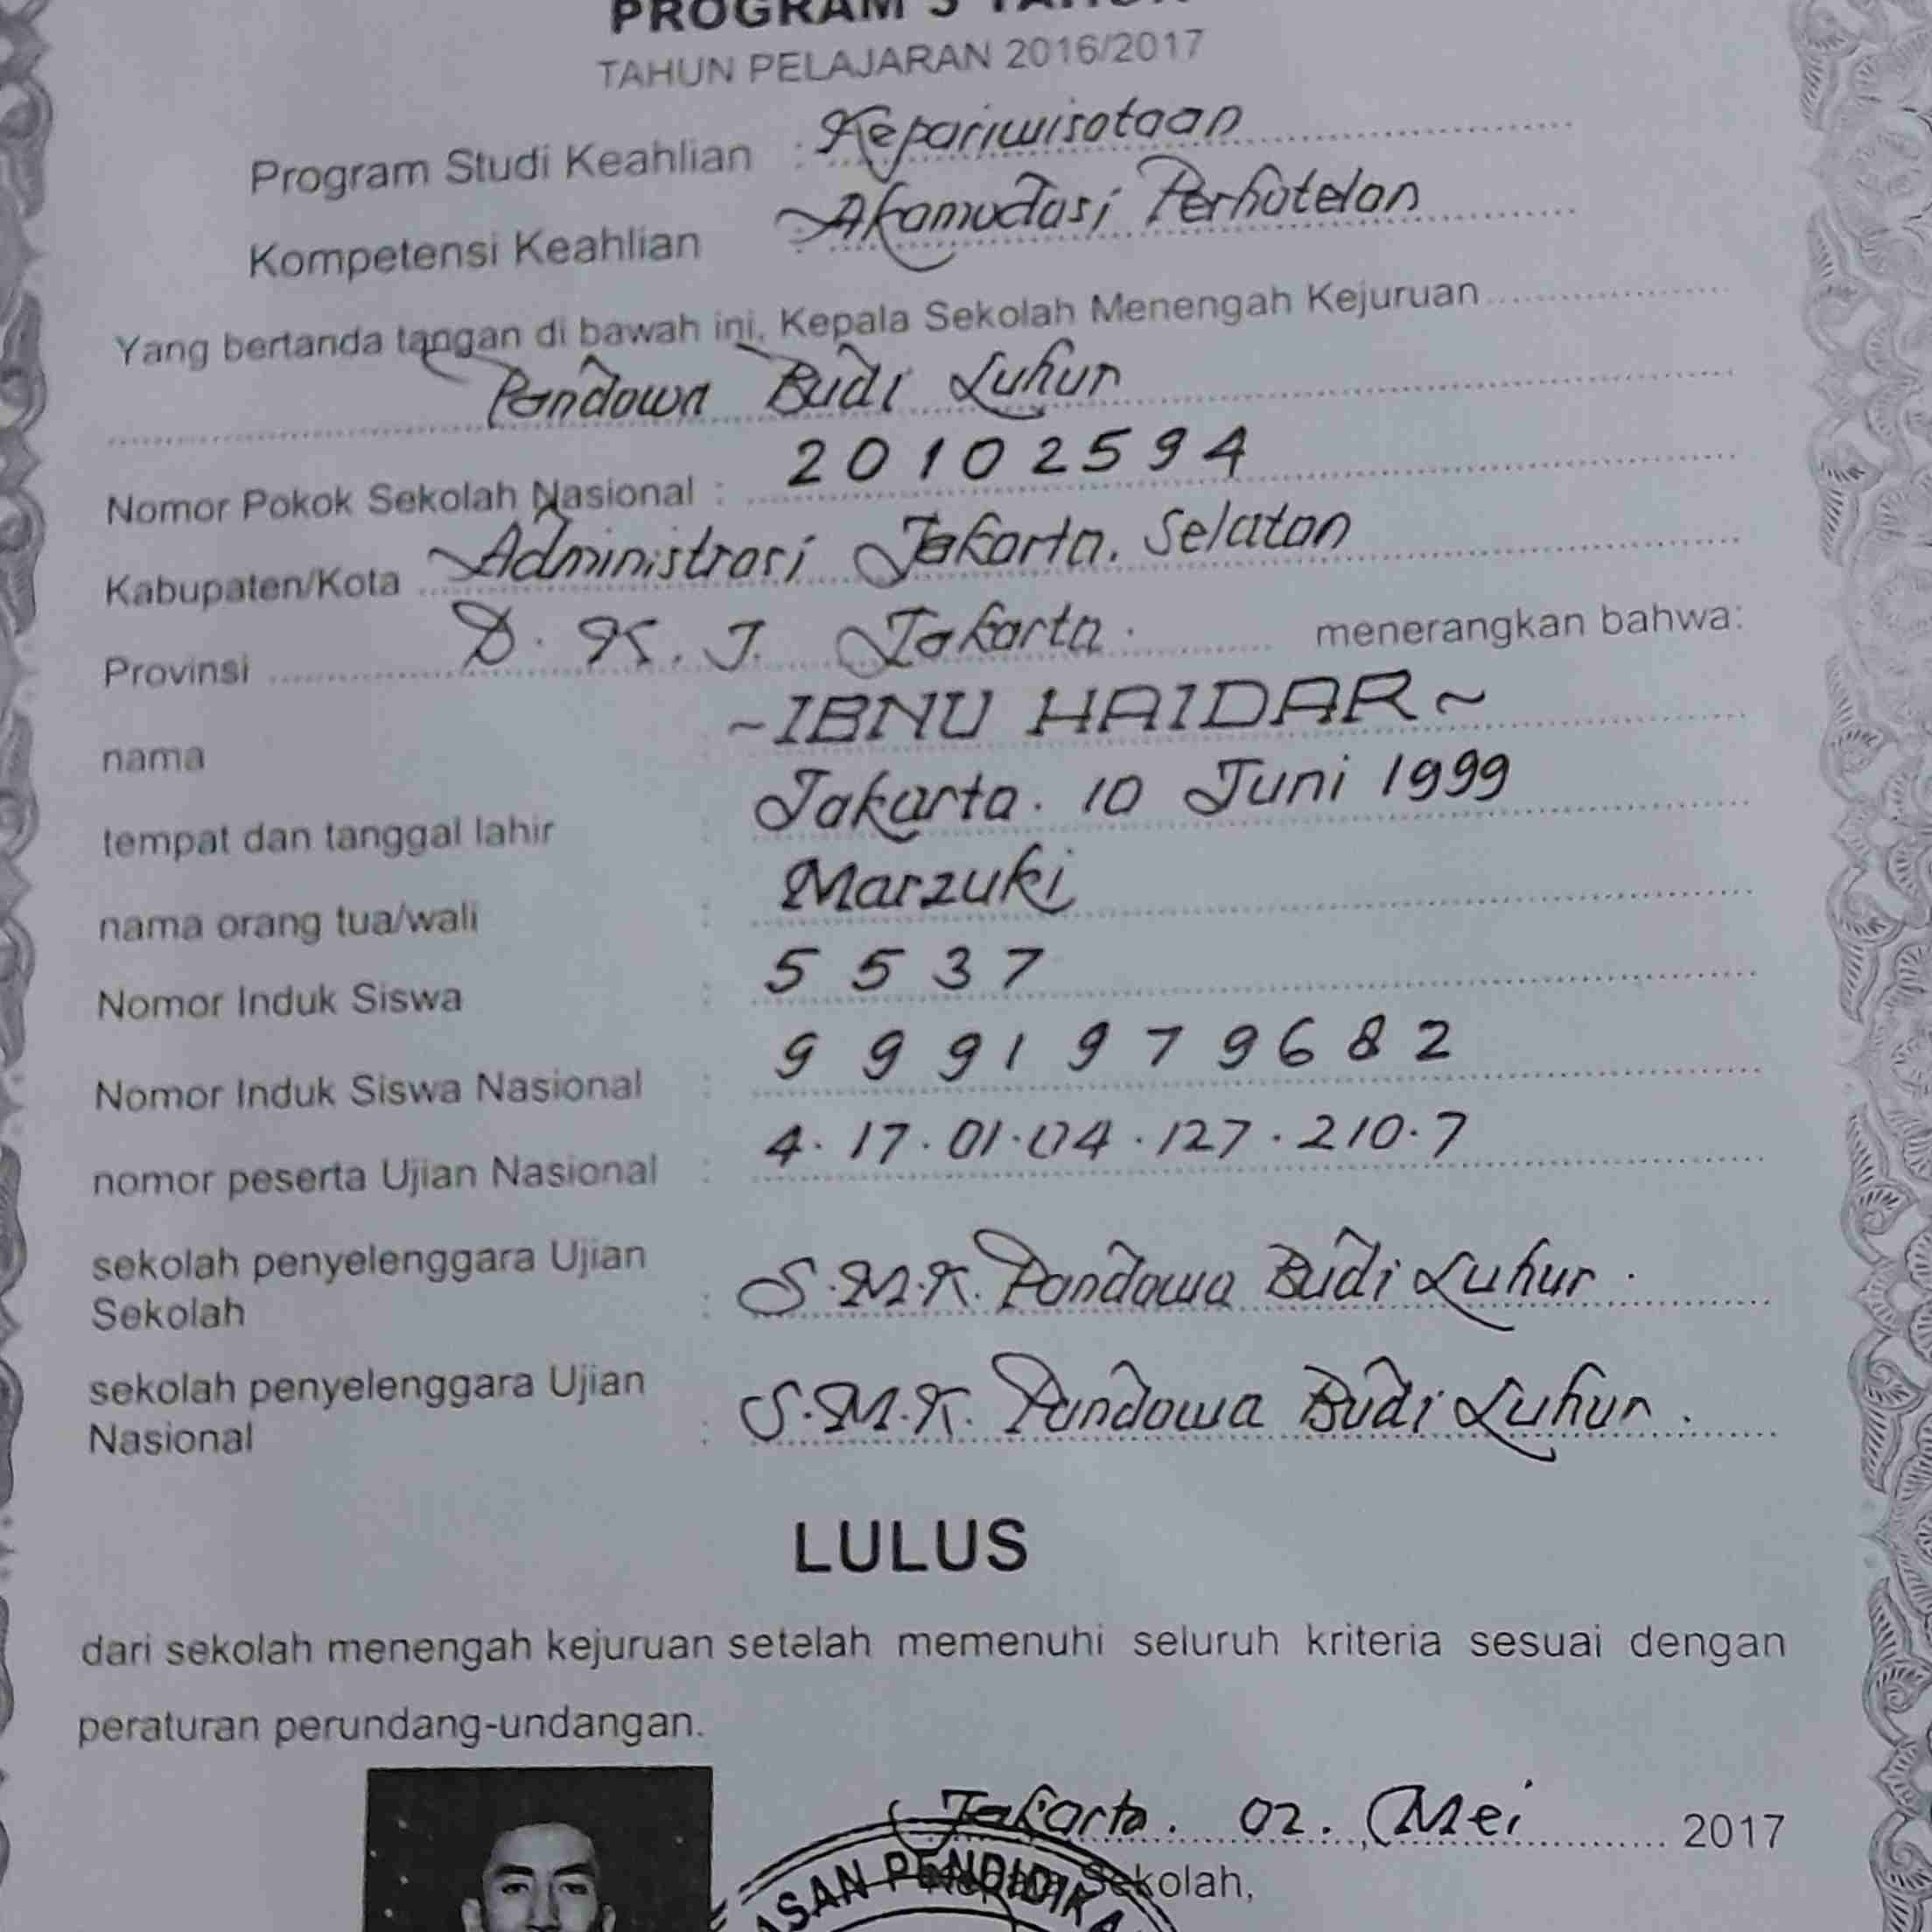 PROGRAM 3 TAHUN
TAHUN PELAJARAN 2016/2017
Program Studi Keahlian : Kepariwisataan
Kompetensi Keahlian : Akomodasi Perhotelan
Yang bertanda tangan di bawah ini, Kepala Sekolah Menengah Kejuruan
Pandawa Budi Luhur
Nomor Pokok Sekolah Nasional : 20102594
Kabupaten/Kota Administrasi Jakarta Selatan
Provinsi D.K.I. Jakarta menerangkan bahwa:
nama : ~IBNU HAIDAR~
tempat dan tanggal lahir : Jakarta. 10 Juni 1999
nama orang tua/wali : Marzuki
Nomor Induk Siswa : 5537
Nomor Induk Siswa Nasional : 9991979682
nomor peserta Ujian Nasional : 4.17.01.04.127.210.7
sekolah penyelenggara Ujian
Sekolah : S.M.K. Pandawa Budi Luhur.
sekolah penyelenggara Ujian
Nasional : S.M.K. Pandawa Budi Luhur.
LULUS
dari sekolah menengah kejuruan setelah memenuhi seluruh kriteria sesuai dengan
peraturan perundang-undangan.
Jakarta. 02. Mei 2017
Kepala Sekolah,